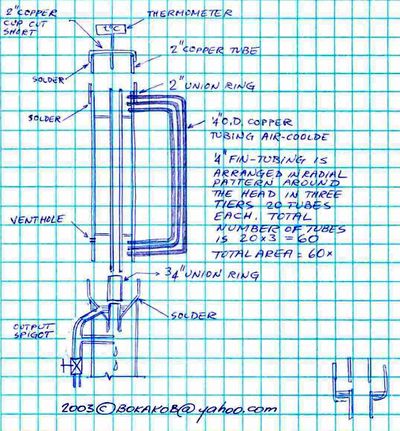 2" COPPER
CUP CUT
SHORT
t°C
THERMOMETER
2" COPPER TUBE
SOLDER
2" UNION RING
SOLDER
1/4" O.D. COPPER
TUBING AIR-COOLDE
1/4" FIN-TUBING IS
ARRANGED IN RADIAL
PATTERN AROUND
THE HEAD IN THREE
TIERS 20 TUBES
EACH. TOTAL
NUMBER OF TUBES
IS 20×3 = 60
TOTAL AREA = 60×
VENTHOLE
3/4" UNION RING
SOLDER
OUTPUT
SPIGOT
2003 © BOKAKOB@yahoo.com